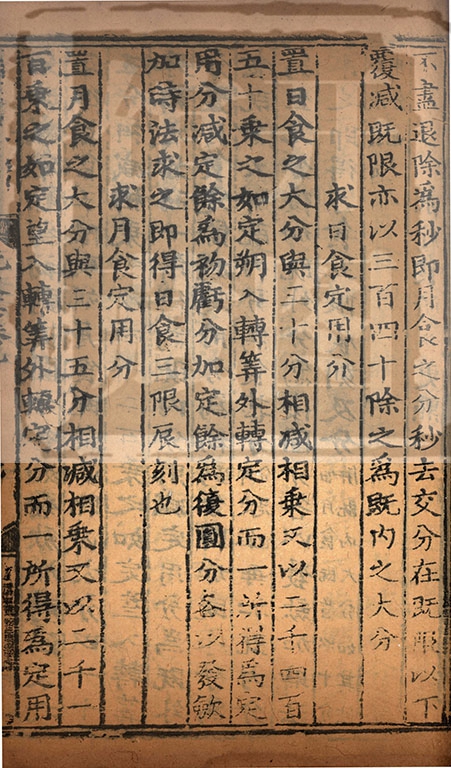 不盡退除為秒即月食之分秒去交分在既限以下
覆减既限亦以三百四十除之為既內之大分
求日食定用分
置日食之大分與三十分相减相乗又以二千四百
五十乗之如定朔入轉筭外轉定分而一所得為定
用分减定餘為初虧分加定餘為復圓分各以發斂
加時法求之即得日食三限辰刻也
求月食定用分
置月食之大分與三十五分相减相乗又以二千一
百乗之如定望入轉筭外轉定分而一所得為定用